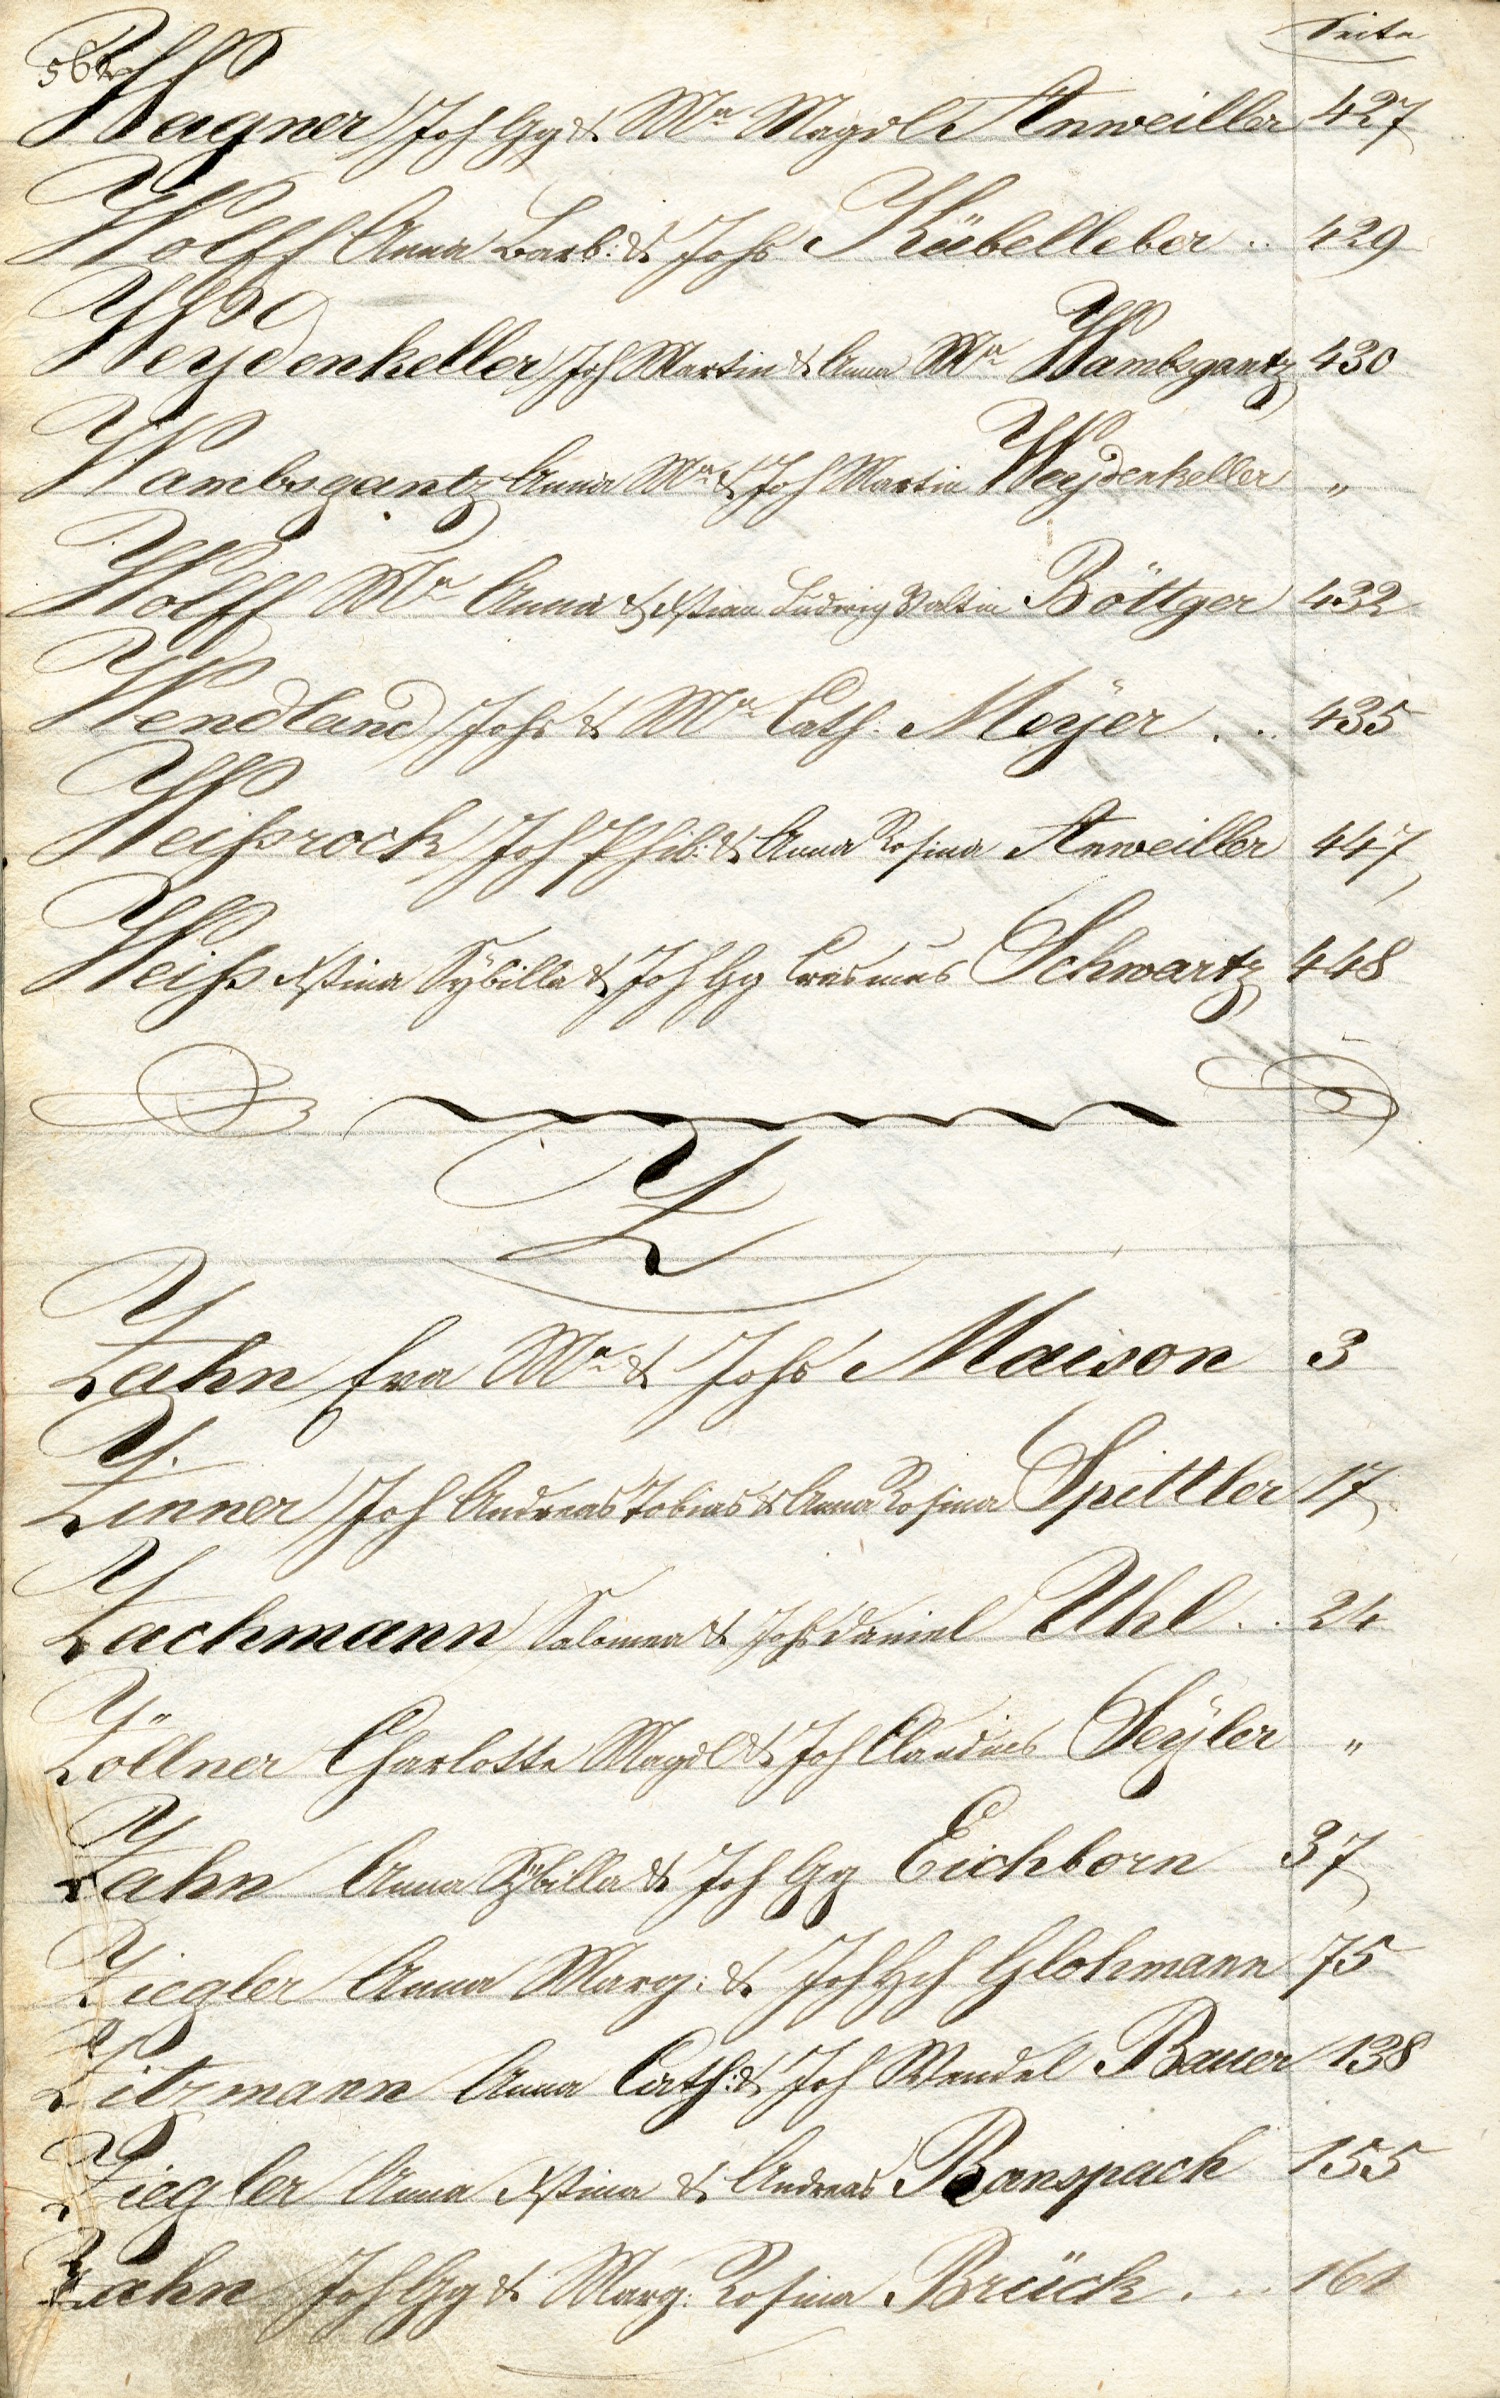 Seite
Wagner Joh Gg & Ma Magdl Anweiller 427
Wolff Anna Barb: & Johs Kübelleber .. 429
Weydenkeller Joh Martin & Anna Ma Wambsgantz 430
Wambsgantz Anna Ma & Joh Martin Weydenkeller "
Wolff Ma Anna & Xstian Ludwig Valtin Böttger 432
Wendland Johs & Ma Cath: Meÿer . .. 435
Weißrock Joh Phil: & Anna Rosina Anweiller 447
Weiß Xstina Sÿbilla & Joh Gg Erasmus Schwartz 448
Z
Zahn Eva Ma & Johs Maison 3
Zinner Joh Andreas Tobias & Anna Rosina Spittler 17
Zachmann Salomea & Johs Daniel Uhl .. 24
Zöllner Charlotte Magdl & Joh Claudius Seÿler "
Zahn Anna Sÿbilla & Joh Gg Eichborn 37
Ziegler Anna Marg: & Joh Hch Glohmann 75
Zitzmann Anna Cath: & Joh Wendel Bauer 138
Ziegler Anna Xstina & Andreas Banspach 155
Zahn Joh Gg & Marg: Rosina Brück . .. 161